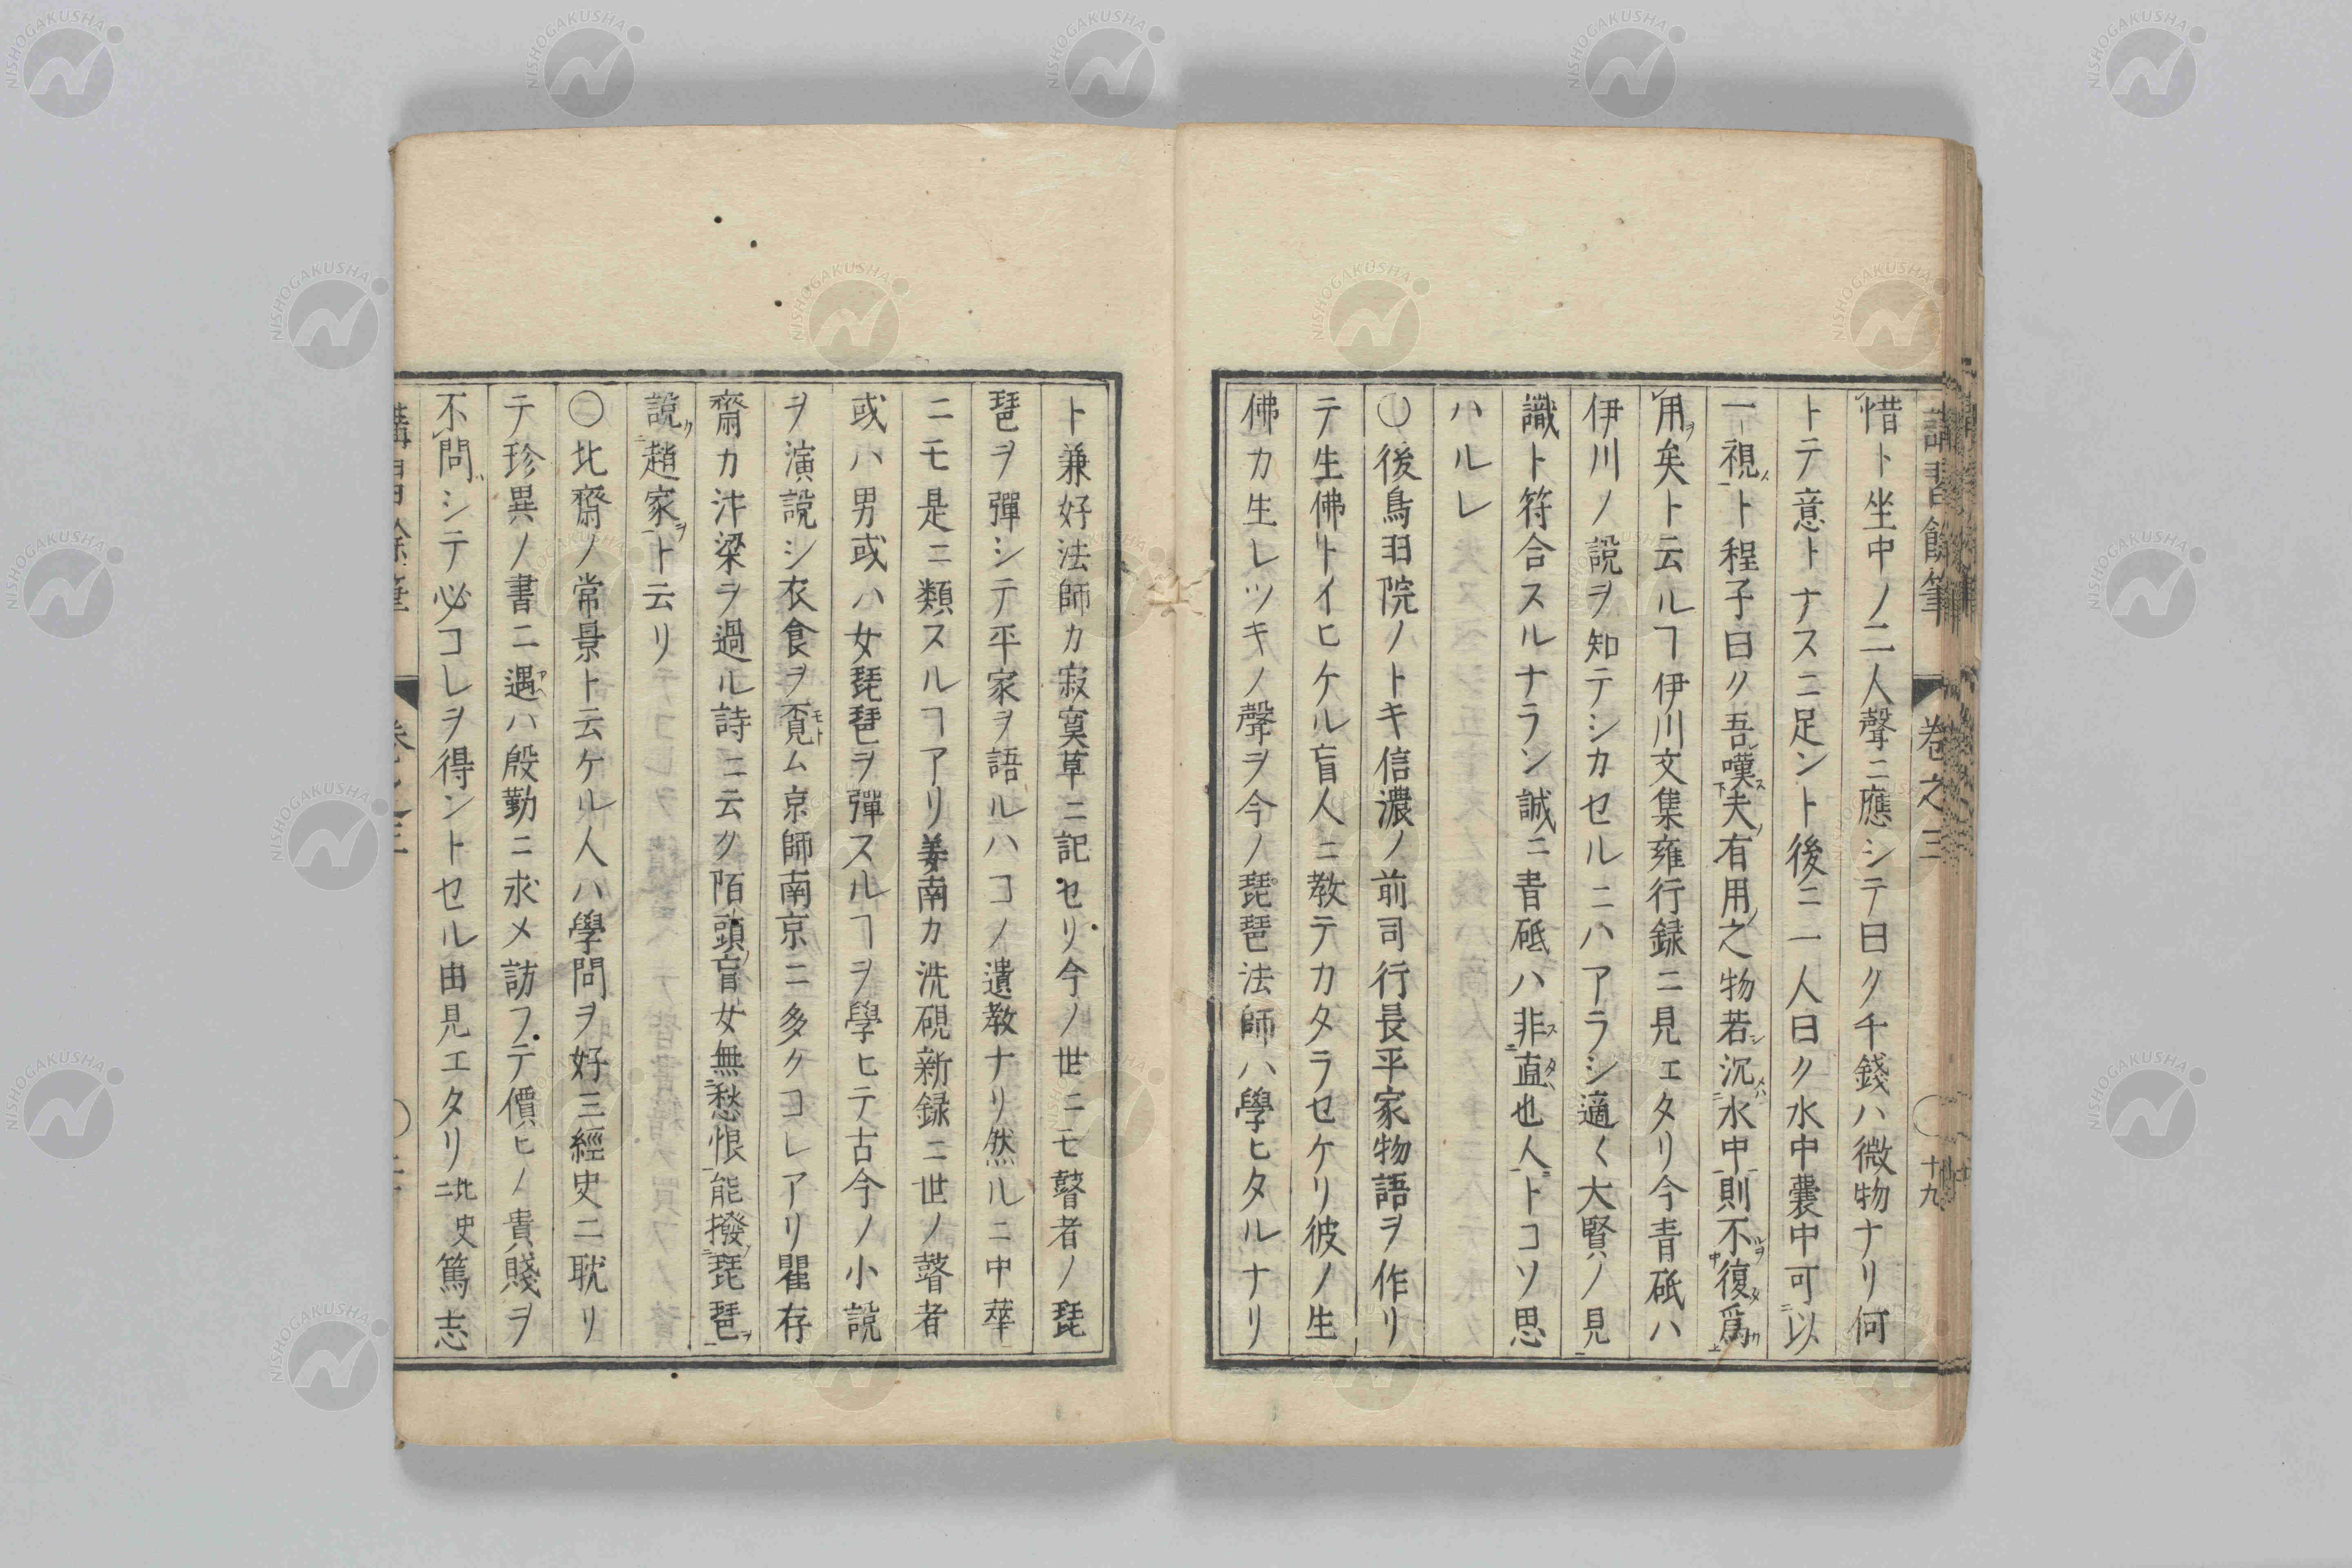 講習餘筆 卷之三 十九
惜ト坐中ノ二人聲ニ應シテ曰ク千錢ハ微物ナリ何
トテ意トナスニ足ント後ニ一人曰ク水中囊中可以
一視ト程子曰ク吾嘆夫有用之物若沉水中則不復爲
用矣ト云ルヿ伊川文集雍行録ニ見エタリ今青砥ハ
伊川ノ說ヲ知テシカセルニハアラシ適〱大賢ノ見
識ト符合スルナラン誠ニ青砥ハ非直也人トコソ思
ハルレ
○後鳥羽院ノトキ信濃ノ前司行長平家物語ヲ作リ
テ生佛トイヒケル盲人ニ教テカタラセケリ彼ノ生
佛カ生レツキノ聲ヲ今ノ琵琶法師ハ學ヒタルナリ
ト兼好法師カ寂寞草ニ記セリ今ノ世ニモ瞽者ノ琵
琶ヲ彈シテ平家ヲ語ルハコノ遺教ナリ然ルニ中華
ニモ是ニ類スルヿアリ姜南カ洗硯新録ニ世ノ瞽者
或ハ男或ハ女琵琶ヲ彈スルヿヲ學ヒテ古今ノ小說
ヲ演說シ衣食ヲ覓ム京師南京ニ多クコレアリ瞿存
齋カ汴梁ヲ過ル詩ニ云ク陌頭盲女無愁恨能撥琵琶
說趙家ト云リ
○北齋ノ常景ト云ケル人ハ學問ヲ好三經史ニ耽リ
テ珍異ノ書ニ遇ハ殷勤ニ求メ訪フテ價ヒノ貴賤ヲ
不問シテ必コレヲ得ントセル由見エタリ北史ニ篤志
講習餘筆 卷之三
NISHOGAKUSHA